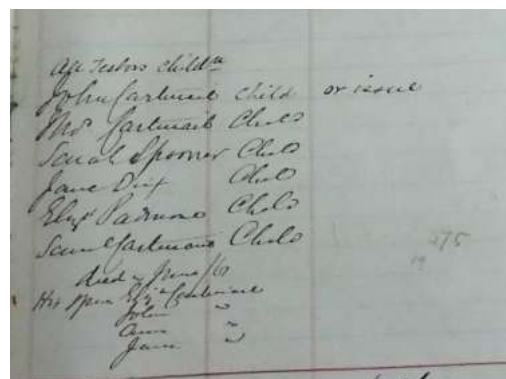 All Testors childn
John Cartmail Child or issue
Thos Cartmail Child
Sarah Spooner Child
Jane Dix Child
Elizth Child
Saml Cartmail Child
died June /61
His Elizth Cartmail
John "
Ann "
Jane "
275
19